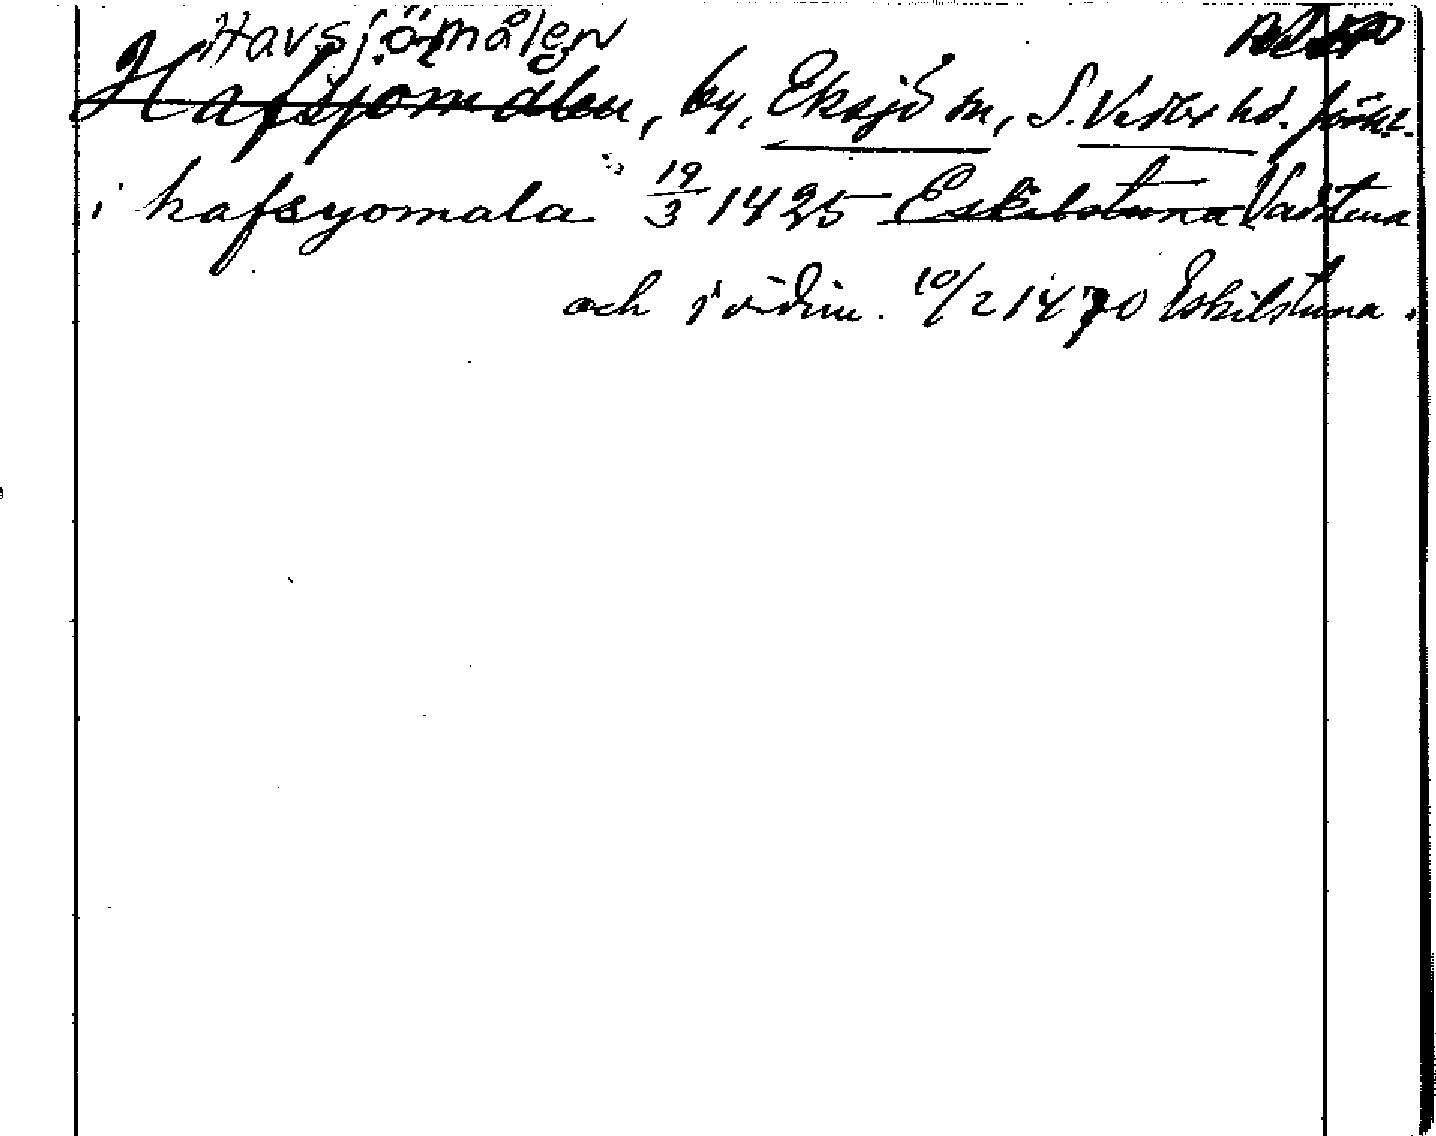 Havsjömålen
Hafsjömålen, by, Eksjö sn, S. Vedbo hd. Jönk.
i hafsyomala 19/3 1425 Eskilstuna Vadstena
och 10/2 1470 Eskilstuna.